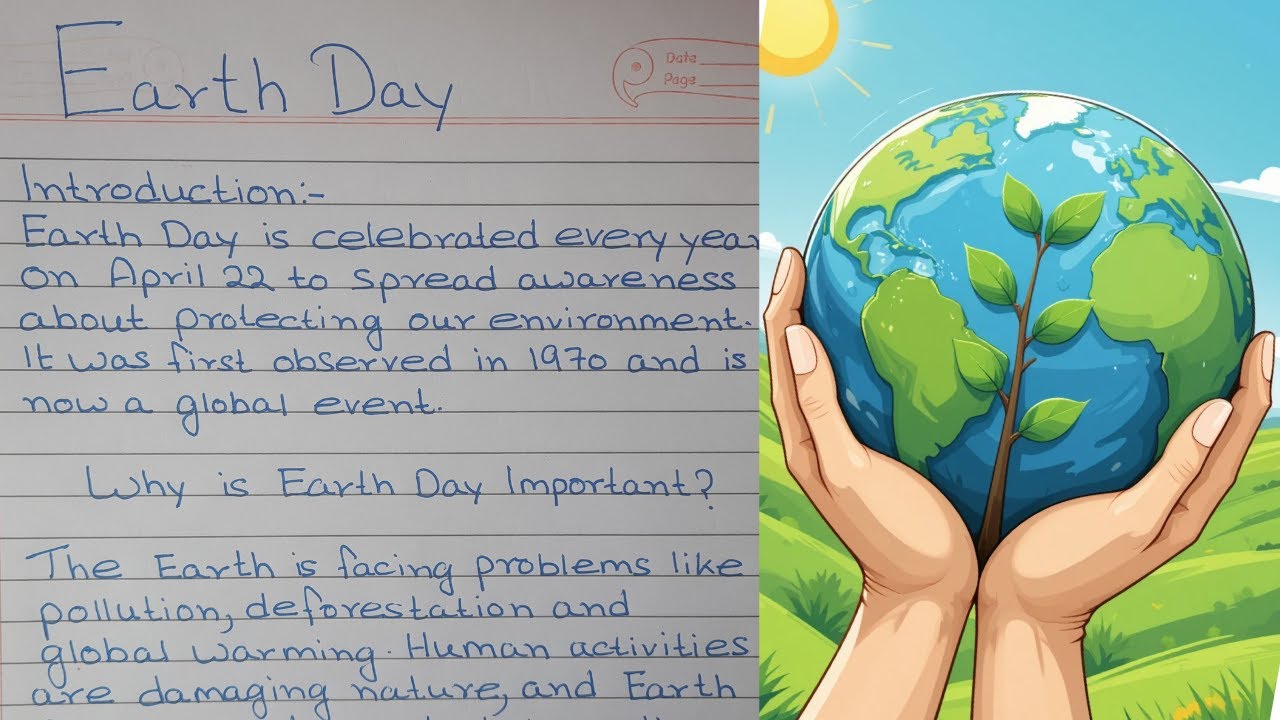 Earth Day
Date
Page
Introduction:-
Earth Day is celebrated every year
on April 22 to spread awareness
about protecting our environment.
It was first observed in 1970 and is
now a global event.
Why is Earth Day Important?
The Earth is facing problems like
pollution, deforestation and
global warming. Human activities
are damaging nature, and Earth